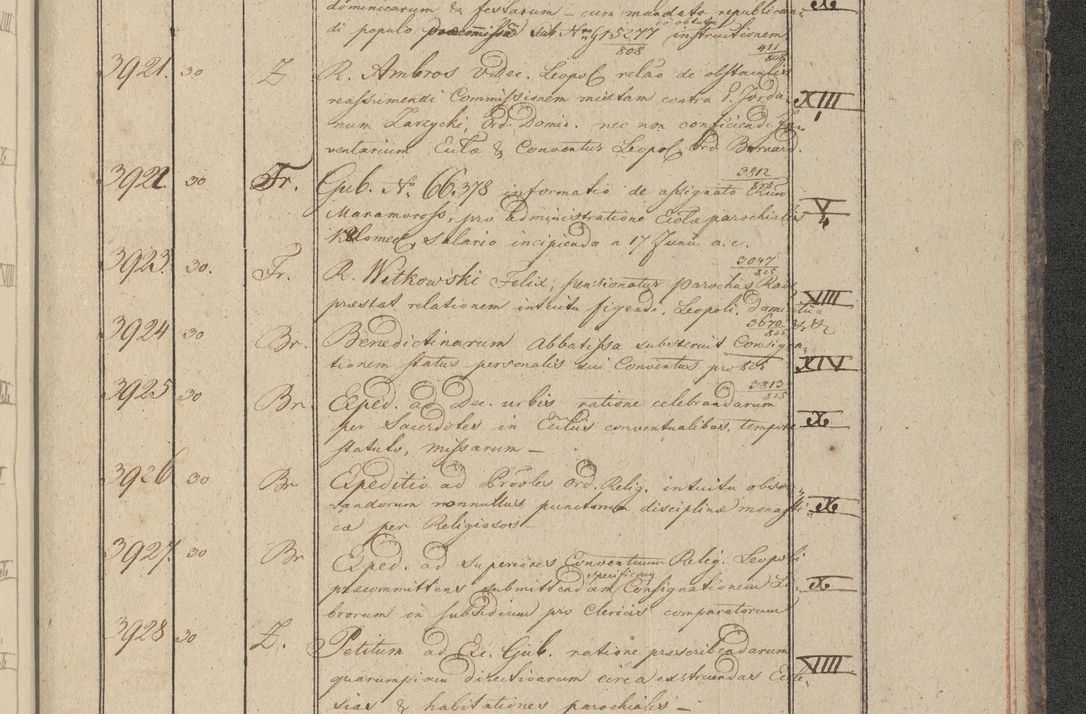 dominicarum & festarum – cum mandato republican- X
di populo praecommissa sub Nro 5277 instructionem
808
411
808
3921. 30 Z R. Ambros VDec. Leopol relão de obstaculis
reassumendi Commissionem mixtam contra P. Jorda- XIII
num Zarzycki, Ord. Domin. nec non conficiendi In- 1
ventarium Ecclae & Conventus Leopol Ord. Bernard.
3812
825
3922 30 Fr. Gub. No. 66.378 informatio de assignato
Maramoross, pro administratione Ecclae parochialis V
4
salario incipiendo a 17 Junii a.c.
3047
825
3923. 30. Fr. R. Witkowski Felix, pensionatus parochus Rav
praestat relationem intuitu figendi Leopoli domicilii XIII
3670
825
3924 30 Br. Benedictinarum Abbatissa substernit Consigna-
tionem status personalis sui Conventus pro 825 XIV
3813
825
3925 30 Br. Exped. ad Dec. urbis ratione celebrandarum
per Sacerdotes in Ecclis conventualibus, tempore X
statuto, missarum –
3926 30 Br Expeditio ad Proõles Ord. Relig. intuitu obser-
vandorum nonnullus punctorum disciplinae monasti- X
cae per Religiosos –
3927. 30 Br Exped. ad superiores Conventuum Relig. Leopoli
specificam
praecommittens submittendam Consignationem Li- X
brorum in subsidium pro Clericis comparatorum
3928 30 Z. Petitum ad Exc. Gub. ratione praescribendarum
quarumpiam directivarum circa exstruendas Eccle- VIII
sias & habitationes parochiales –